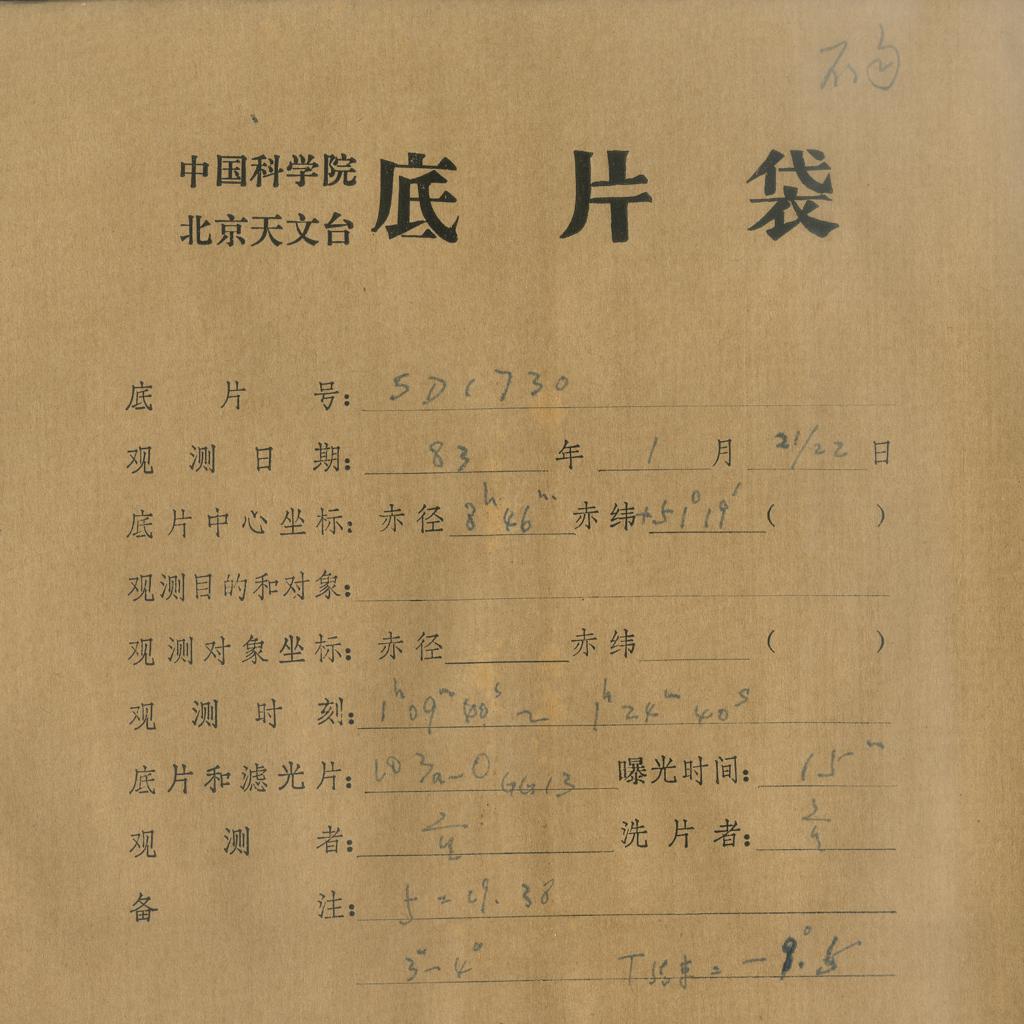 中国科学院
北京天文台
底片袋
底片号: SD1730
观测日期: 83年 1月 21/22日
底片中心坐标: 赤径 8h46m 赤纬 +51°19′ ( )
观测目的和对象:
观测对象坐标: 赤径 赤纬 ( )
观测时刻: 1h09m40s ~ 1h24m40s
底片和滤光片: 103a-O GG13 曝光时间: 15m
观测者: 洗片者:
备注: f = 29.38
3"-4" T结束 = -9°.5